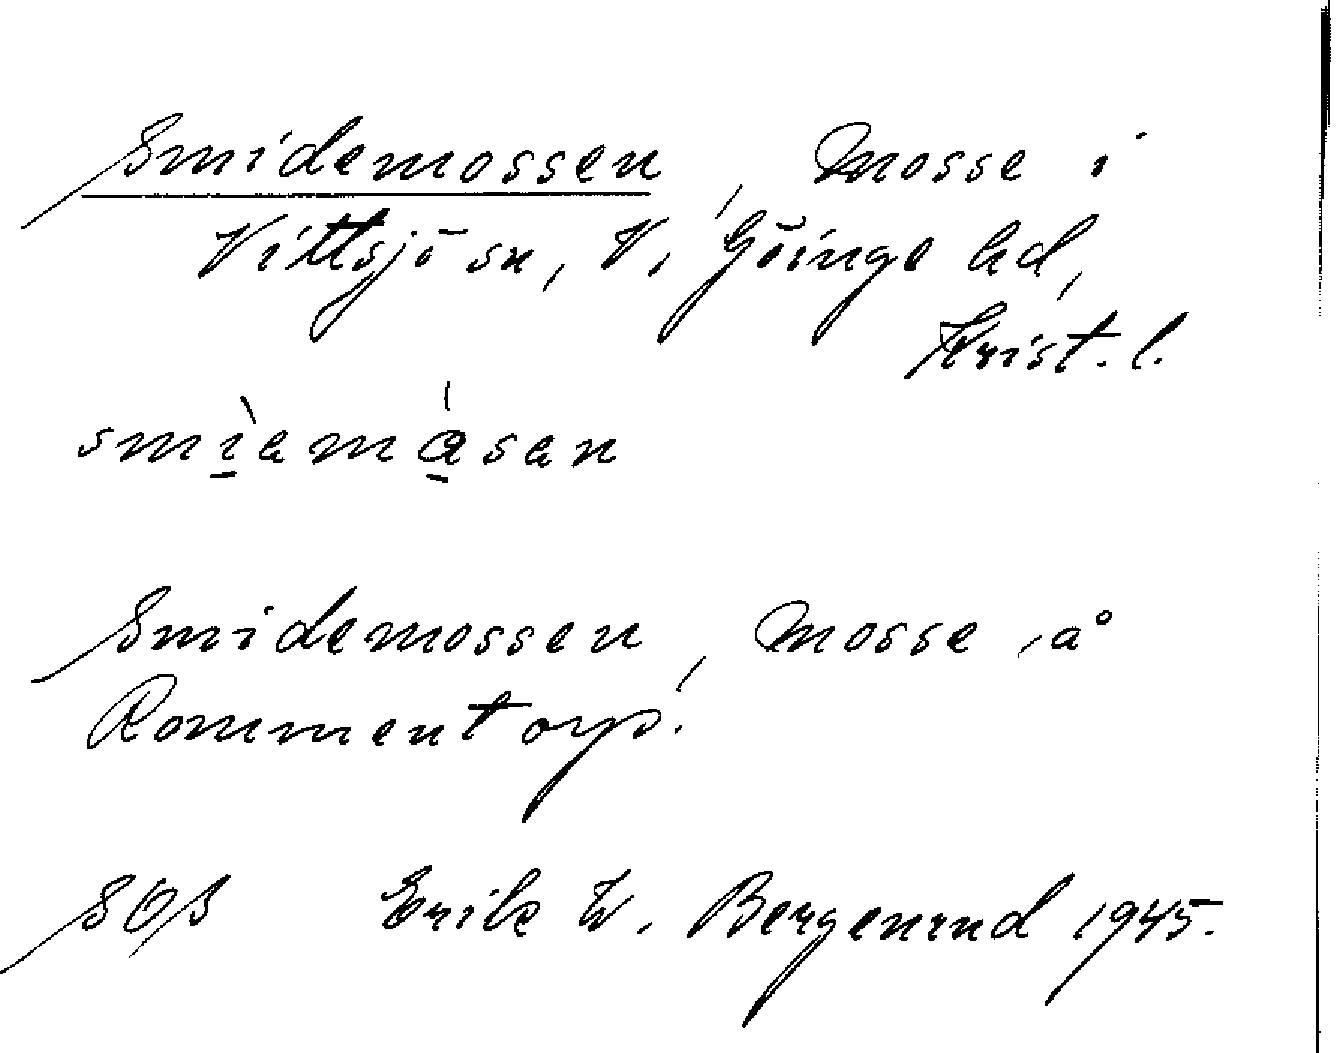 Smidemossen, Mosse i
Vittsjö sn, V. Göinge hd,
Krist. l.
smìemásen
Smidemossen, Mosse å
Rommentorp.
SOS Erik W.
1945.